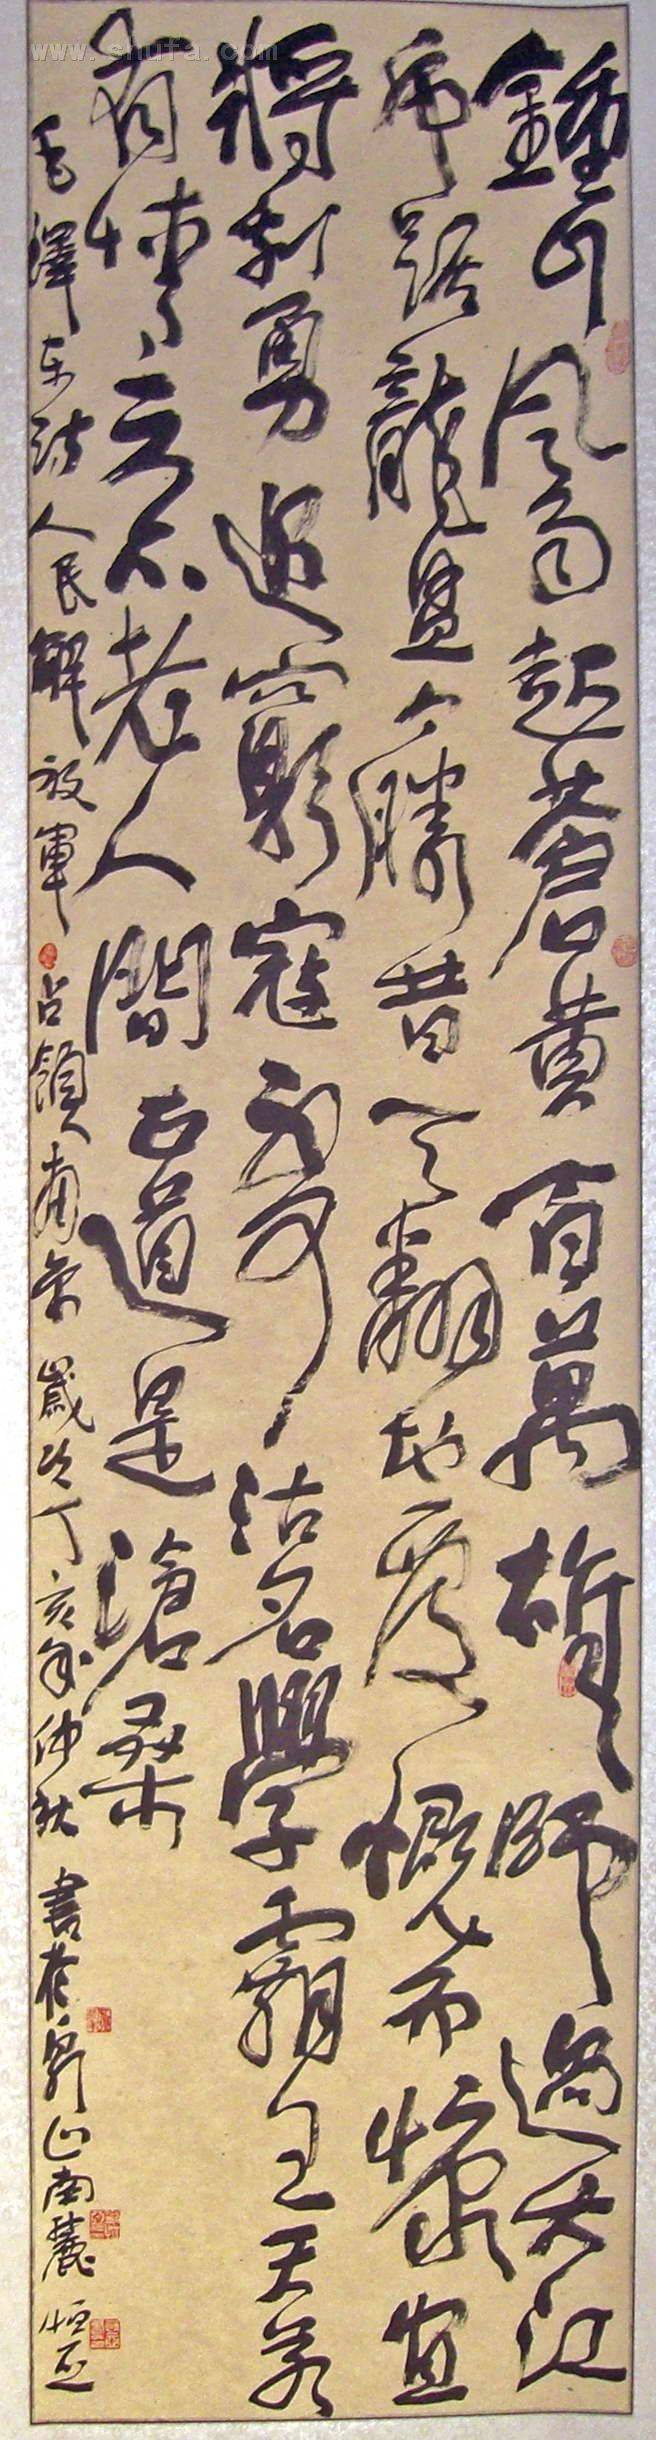 www.shufa.com
鍾山风雨起蒼黄百萬雄師過大江
虎踞龍盤今勝昔天翻地覆慨而慷宜
將剩勇追窮寇不可沽名學霸王天若
有情天亦老人間正道是滄桑
毛澤东詩人民解放軍占領南京歲次丁亥年仲秋書於泉山南麓